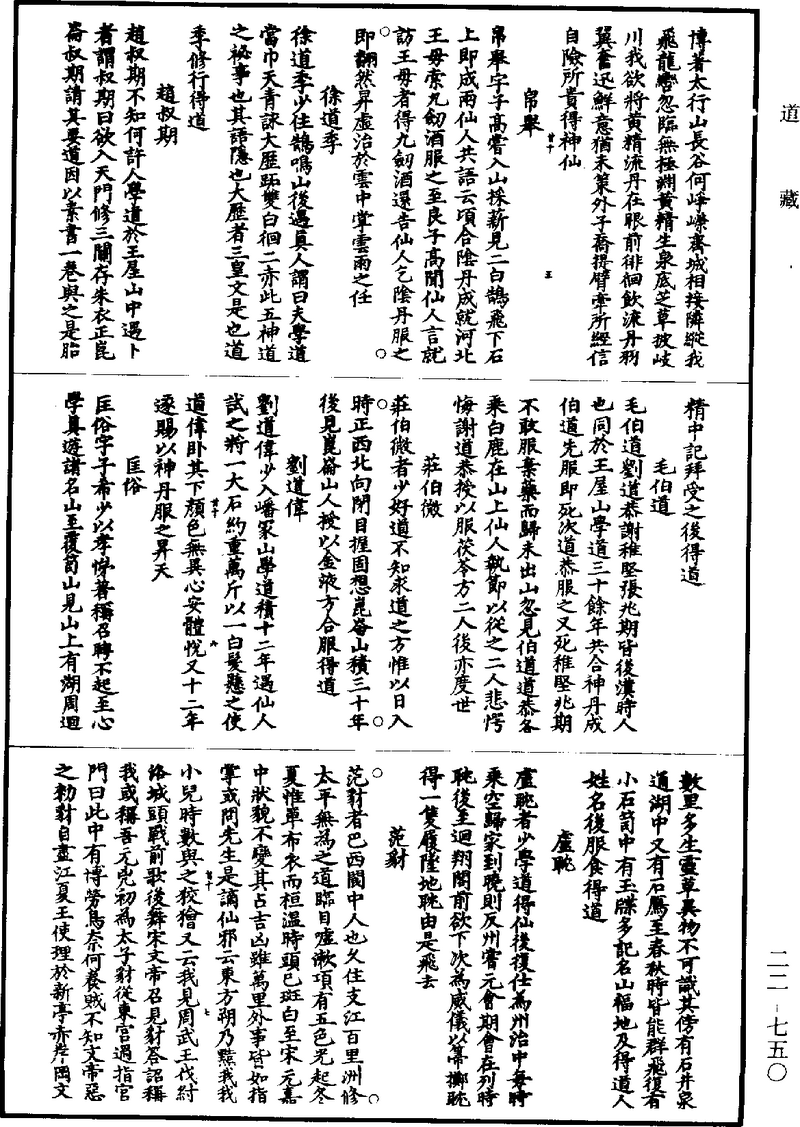 道藏
博著太行山長谷何崢嶸齊城相接隣縱我
飛龍轡忽臨無極淵黃精生泉底芝草披岐
川我欲將黃精流丹在眼前徘徊飲流丹羽
翼奮迅鮮意猶未策外子喬提臂牽所經信
自險所貴得神仙
帛舉
帛舉字子高嘗入山採薪見二白鵠飛下石
上即成兩仙人共語云頃合陰丹成就河北
王母索九劒酒服之至良子高聞仙人言就
訪王母者得九劒酒還告仙人乞陰丹服之
即翻然昇虛治於雲中掌雲雨之任
徐道季
徐道季少住鵠鳴山後遇真人謂曰夫學道
當巾天青詠大歷跖雙白徊二赤此五神道
之祕事也其語隱也大歷者三皇文是也道
季修行得道
趙叔期
趙叔期不知何許人學道於王屋山中遇卜
者謂叔期曰欲入天門修三關存朱衣正崑
崙叔期請其要道因以素書一卷與之是胎
精中記拜受之後得道
毛伯道
毛伯道劉道恭謝稚堅張兆期皆後漢時人
也同於王屋山學道三十餘年共合神丹成
伯道先服即死次道恭服之又死稚堅兆期
不敢服棄藥而歸未出山忽見伯道道恭各
乘白鹿在山上仙人執節以從之二人悲愕
悔謝道恭授以服茯苓方二人後亦度世
莊伯微
莊伯微者少好道不知求道之方惟以日入
時正西北向閉目握固想崑崙山積三十年
後見崑崙山人授以金液方合服得道
劉道偉
劉道偉少入嶓冢山學道積十二年遇仙人
試之將一大石約重萬斤以一白髮懸之使
道偉卧其下顏色無異心安體悅又十二年
遂賜以神丹服之昇天
匡俗
匡俗字子希少以孝悌著稱召聘不起至心
學真遊諸名山至覆笥山見山上有湖周迴
數里多生靈草異物不可識其傍有石井泉
通湖中又有石鴈至春秋時皆能群飛復有
小石笥中有玉牒多記名山福地及得道人
姓名後服食得道
盧耽
盧耽者少學道得仙後復仕為州治中每時
乘空歸家到曉則反州嘗元會期會在列時
耽後至迴翔閣前欲下次為威儀以箒擲耽
得一隻履墜地耽由是飛去
范豺
范豺者巴西閬中人也久住支江百里洲修
太平無為之道臨目噓漱項有五色光起冬
夏惟單布衣而桓溫時頭已斑白至宋元嘉
中狀貌不變其占吉凶雖萬里外事皆如指
掌或問先生是謫仙邪云東方朔乃黠我我
小兒時數與之狡獪又云我見周武王伐紂
洛城頭戰前歌後舞宋文帝召見豺荅詔稱
我或稱吾元兇初為太子豺從東宮過指宮
門曰此中有博勞鳥奈何養賊不知文帝惡
之勑豺自盡江夏王使理於新亭赤岸岡文
二二－七五〇